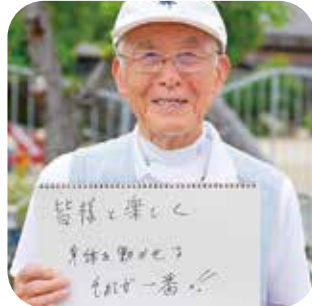 皆様と楽しく
身体を動かせる
それが一番!!